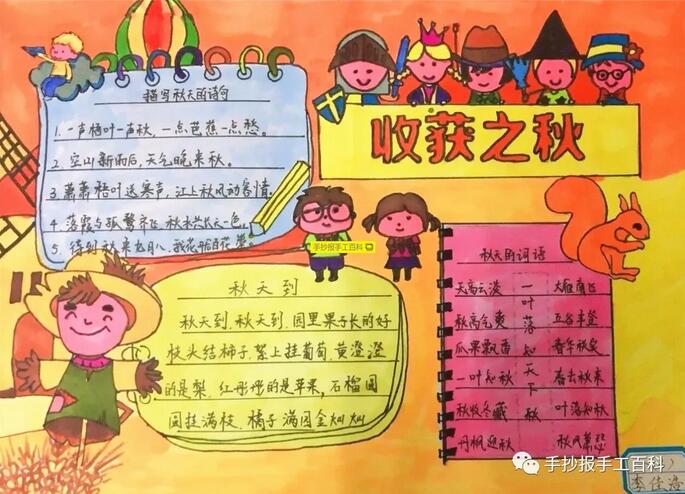 收获之秋
描写秋天的诗句
1. 一声梧叶一声秋，一点芭蕉一点愁。
2. 空山新雨后，天气晚来秋。
3. 萧萧梧叶送寒声，江上秋风动客情。
4. 落霞与孤鹜齐飞，秋水共长天一色。
5. 待到秋来九月八，我花开后百花
手抄报手工百科
秋天到
秋天到，秋天到，园里果子长的好
枝头结柿子，絮上挂葡萄，黄澄澄
的是梨，红彤彤的是苹果，石榴园
园挂满枝，橘子满园金灿灿
秋天的词语
天高云淡
秋高气爽
瓜果飘香
一叶知秋
秋收冬藏
丹枫迎秋
一叶落知天下秋
大雁南飞
五谷丰登
春华秋实
春去秋来
叶落知秋
秋风萧瑟
李佳浩
手抄报手工百科